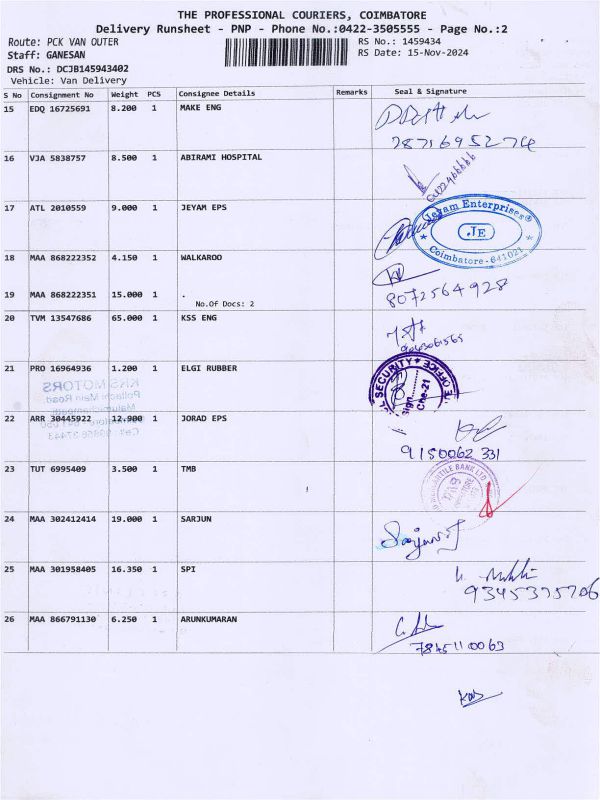 THE PROFESSIONAL COURIERS, COIMBATORE
Delivery Runsheet - PNP - Phone No.:0422-3505555 - Page No.:2
Route: PCK VAN OUTER
RS No.: 1459434
Staff: GANESAN
RS Date: 15-Nov-2024
DRS No.: DCJB145943402
Vehicle: Van Delivery
S No Consignment No Weight PCS Consignee Details Remarks Seal & Signature
15 EDQ 16725691 8.200 1 MAKE ENG
16 VJA 5838757 8.500 1 ABIRAMI HOSPITAL
17 ATL 2010559 9.000 1 JEYAM EPS
Jeyam Enterprises
JE
Coimbatore - 641021
18 MAA 868222352 4.150 1 WALKAROO
19 MAA 868222351 15.000 1 .
No.Of Docs: 2
8072564928
20 TVM 13547686 65.000 1 KSS ENG
21 PRO 16964936 1.200 1 ELGI RUBBER
SECURITY
Sign
Che-21
KKS MOTORS
Pollachi Main Road
22 ARR 30445922 12.900 1 JORAD EPS
9150062 331
23 TUT 6995409 3.500 1 TMB
MERCANTILE BANK LTD
24 MAA 302412414 19.000 1 SARJUN
25 MAA 301958405 16.350 1 SPI
26 MAA 866791130 6.250 1 ARUNKUMARAN
7845110063